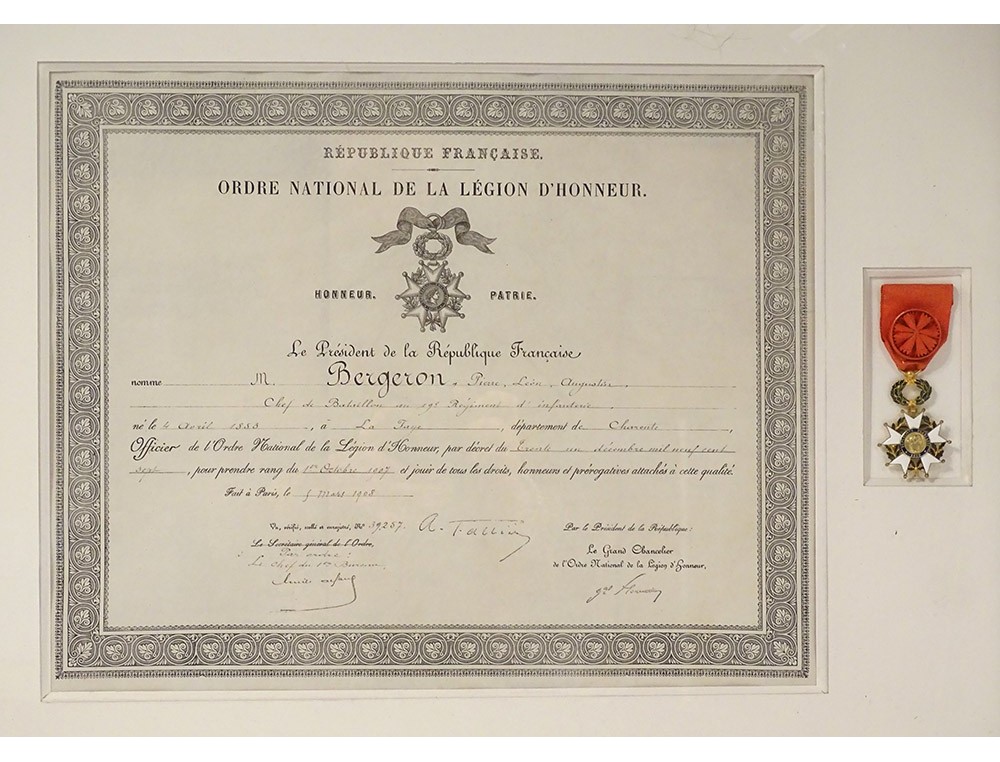 RÉPUBLIQUE FRANÇAISE.
ORDRE NATIONAL DE LA LÉGION D'HONNEUR.
HONNEUR. PATRIE.
Le Président de la République Française
nomme M. Bergeron, Pierre, Léon, Augustin,
Chef de Bataillon au 19e Régiment d'infanterie
né le 4 Avril 1853, à La Faye, département de Charente,
Officier de l'Ordre National de la Légion d'Honneur, par décret du Trente un décembre mil neuf cent
sept, pour prendre rang du 1er Octobre 1907 et jouir de tous les droits, honneurs et prérogatives attachés à cette qualité.
Fait à Paris, le 5 Mars 1908
Vu, vérifié, scellé et enregistré, No 39257. Par le Président de la République:
Le Secrétaire général de l'Ordre, Le Grand Chancelier
Par ordre: de l'Ordre National de la Légion d'Honneur,
Le Chef du 1er Bureau